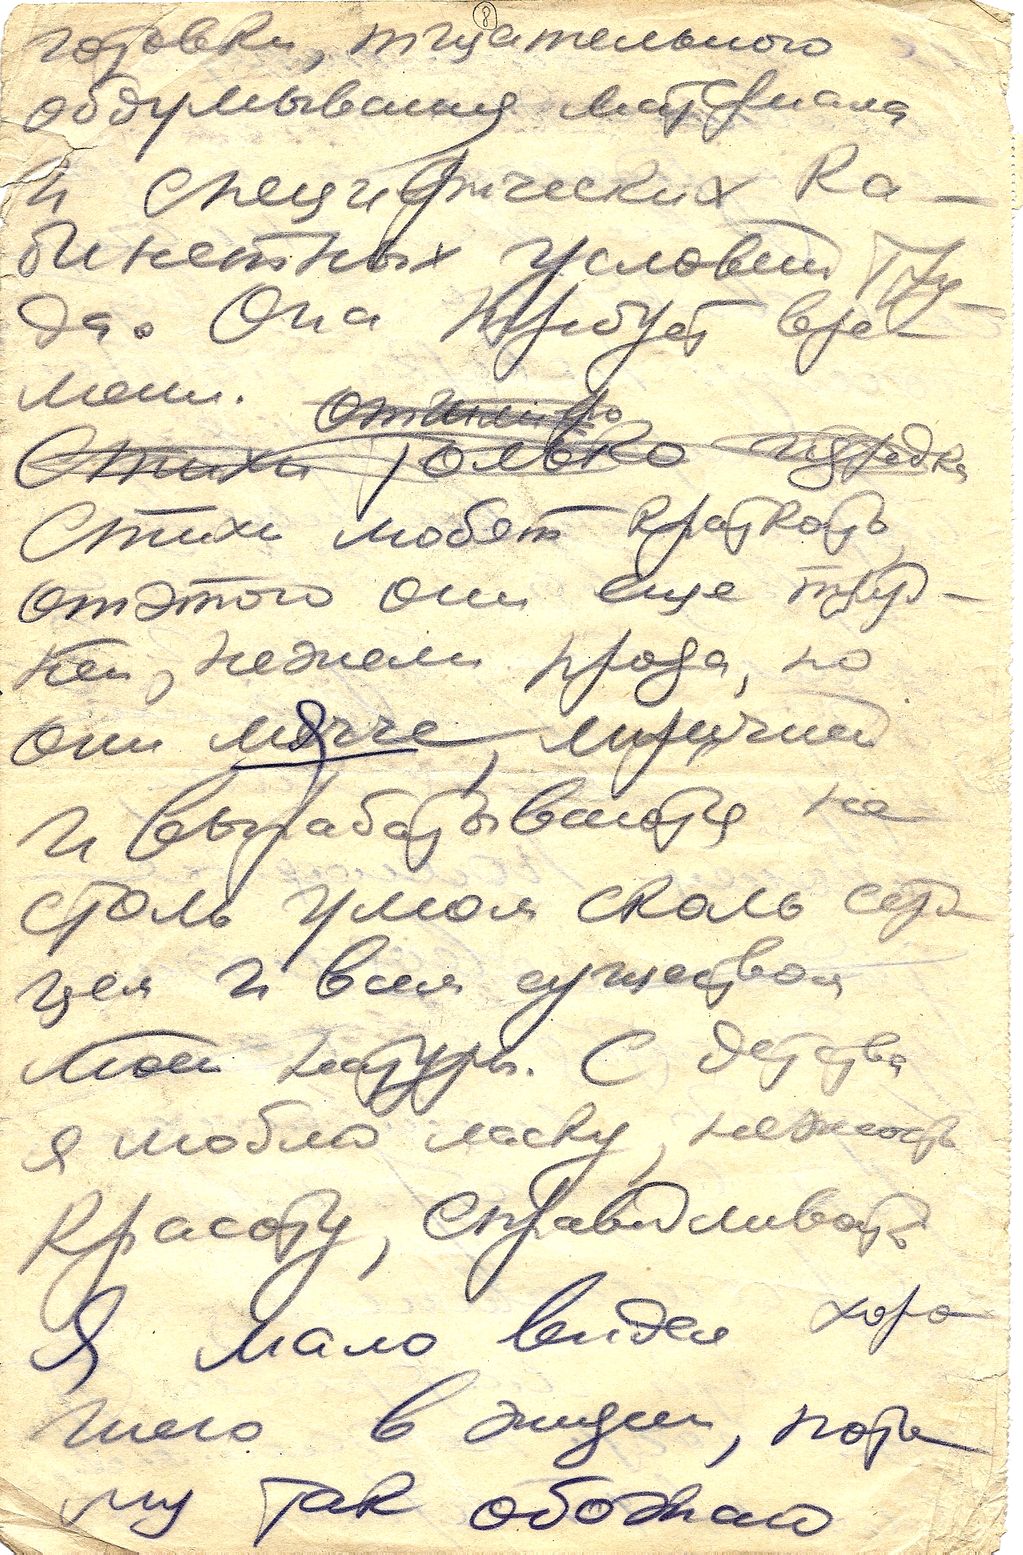 8
готовки, тщательного
обдумывания материала
и специфических ка-
бинетных условий тру-
да. Она требует вре-
мени.
Стихи только изредка
Стихи любят краткость,
отэтого они еще труд-
ней, нежели проза, но
они мягче, лиричней
и вырабатываются не
столь умом сколь серд-
цем и всем существом
моей натуры. С детства
я люблю ласку, нежность
красоту, справедливость
Я мало видел хоро-
шего в жизни, пото-
му так обожаю